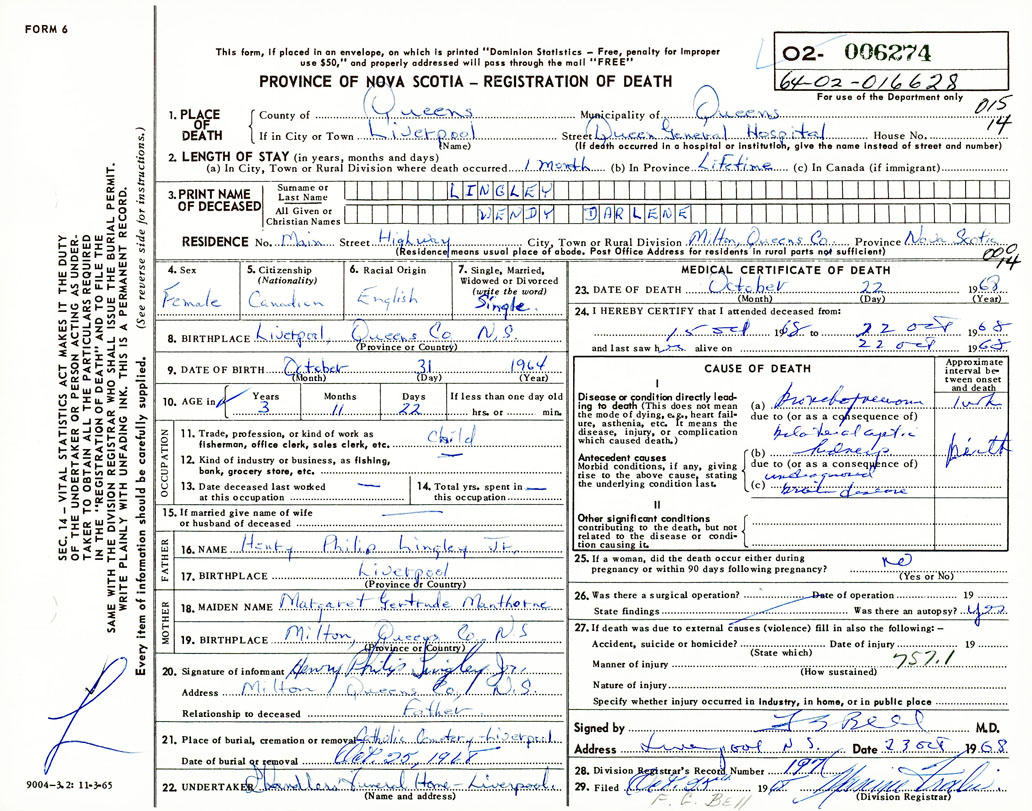 FORM 6
This form, if placed in an envelope, on which is printed "Dominion Statistics – Free, penalty for improper
use $50," and properly addressed will pass through the mail "FREE"
PROVINCE OF NOVA SCOTIA – REGISTRATION OF DEATH
02- 006274
64-02-016628
For use of the Department only
015
14
1. PLACE OF DEATH
County of Queens Municipality of Queens
If in City or Town Liverpool Street Queen General Hospital House No.
(Name) (If death occurred in a hospital or institution, give the name instead of street and number)
2. LENGTH OF STAY (in years, months and days)
(a) In City, Town or Rural Division where death occurred 1 Month (b) In Province Lifetime (c) In Canada (if immigrant)
3. PRINT NAME OF DECEASED
Surname or Last Name LINGLEY
All Given or Christian Names WENDY DARLENE
RESIDENCE No. Main Street Highway City, Town or Rural Division Milton, Queens Co. Province Nova Scotia
(Residence means usual place of abode. Post Office Address for residents in rural parts not sufficient)
000
14
4. Sex
Female
5. Citizenship
(Nationality)
Canadian
6. Racial Origin
English
7. Single, Married,
Widowed or Divorced
(write the word)
Single.
8. BIRTHPLACE Liverpool, Queens Co N.S.
(Province or Country)
9. DATE OF BIRTH October 31 1964
(Month) (Day) (Year)
10. AGE in Years Months Days If less than one day old
3 11 22 hrs. or min.
OCCUPATION
11. Trade, profession, or kind of work as
fisherman, office clerk, sales clerk, etc. Child
12. Kind of industry or business, as fishing,
bank, grocery store, etc.
13. Date deceased last worked
at this occupation
14. Total yrs. spent in
this occupation
15. If married give name of wife
or husband of deceased
FATHER
16. NAME Henry Philip Lingley Jr.
17. BIRTHPLACE Liverpool
(Province or Country)
MOTHER
18. MAIDEN NAME Margaret Gertrude Manthorne
19. BIRTHPLACE Milton, Queens Co., N.S
(Province or Country)
20. Signature of informant Henry Philip Lingley Jr.
Address Milton, Queens Co, N.S.
Relationship to deceased Father
21. Place of burial, cremation or removal Catholic Cemetery - Liverpool
Date of burial or removal Oct. 25, 1968
22. UNDERTAKER Chandlers Funeral Home - Liverpool.
(Name and address)
MEDICAL CERTIFICATE OF DEATH
23. DATE OF DEATH October 22 1968
(Month) (Day) (Year)
24. I HEREBY CERTIFY that I attended deceased from:
15 Oct 1968 to 22 Oct 1968
and last saw her alive on 22 Oct 1968
CAUSE OF DEATH
Approximate
interval be-
tween onset
and death
I
Disease or condition directly lead-
ing to death (This does not mean
the mode of dying, e.g., heart fail-
ure, asthenia, etc. It means the
disease, injury, or complication
which caused death.)
(a)
due to (or as a consequence of)
Antecedent causes
Morbid conditions, if any, giving
rise to the above cause, stating
the underlying condition last.
(b) birth
due to (or as a consequence of)
(c) brain disease
II
Other significant conditions
contributing to the death, but not
related to the disease or condi-
tion causing it.
25. If a woman, did the death occur either during
pregnancy or within 90 days following pregnancy? No
(Yes or No)
26. Was there a surgical operation? Date of operation 19
State findings Was there an autopsy? Yes
27. If death was due to external causes (violence) fill in also the following: –
Accident, suicide or homicide? Date of injury 19
(State which)
757.1
Manner of injury
(How sustained)
Nature of injury
Specify whether injury occurred in Industry, in home, or in public place
Signed by Bell M.D.
Address Liverpool N.S. Date 23 Oct 1968
28. Division Registrar's Record Number
29. Filed Oct. 19
(Division Registrar)
F. C. BELL
SEC. 14 – VITAL STATISTICS ACT MAKES IT THE DUTY
OF THE UNDERTAKER OR PERSON ACTING AS UNDER-
TAKER TO OBTAIN ALL THE PARTICULARS REQUIRED
IN THE "REGISTRATION OF DEATH" AND TO FILE THE
SAME WITH THE DIVISION REGISTRAR WHO SHALL ISSUE THE BURIAL PERMIT.
WRITE PLAINLY WITH UNFADING INK. THIS IS A PERMANENT RECORD.
Every item of information should be carefully supplied. (See reverse side for instructions.)
9004-3.2: 11-3-65